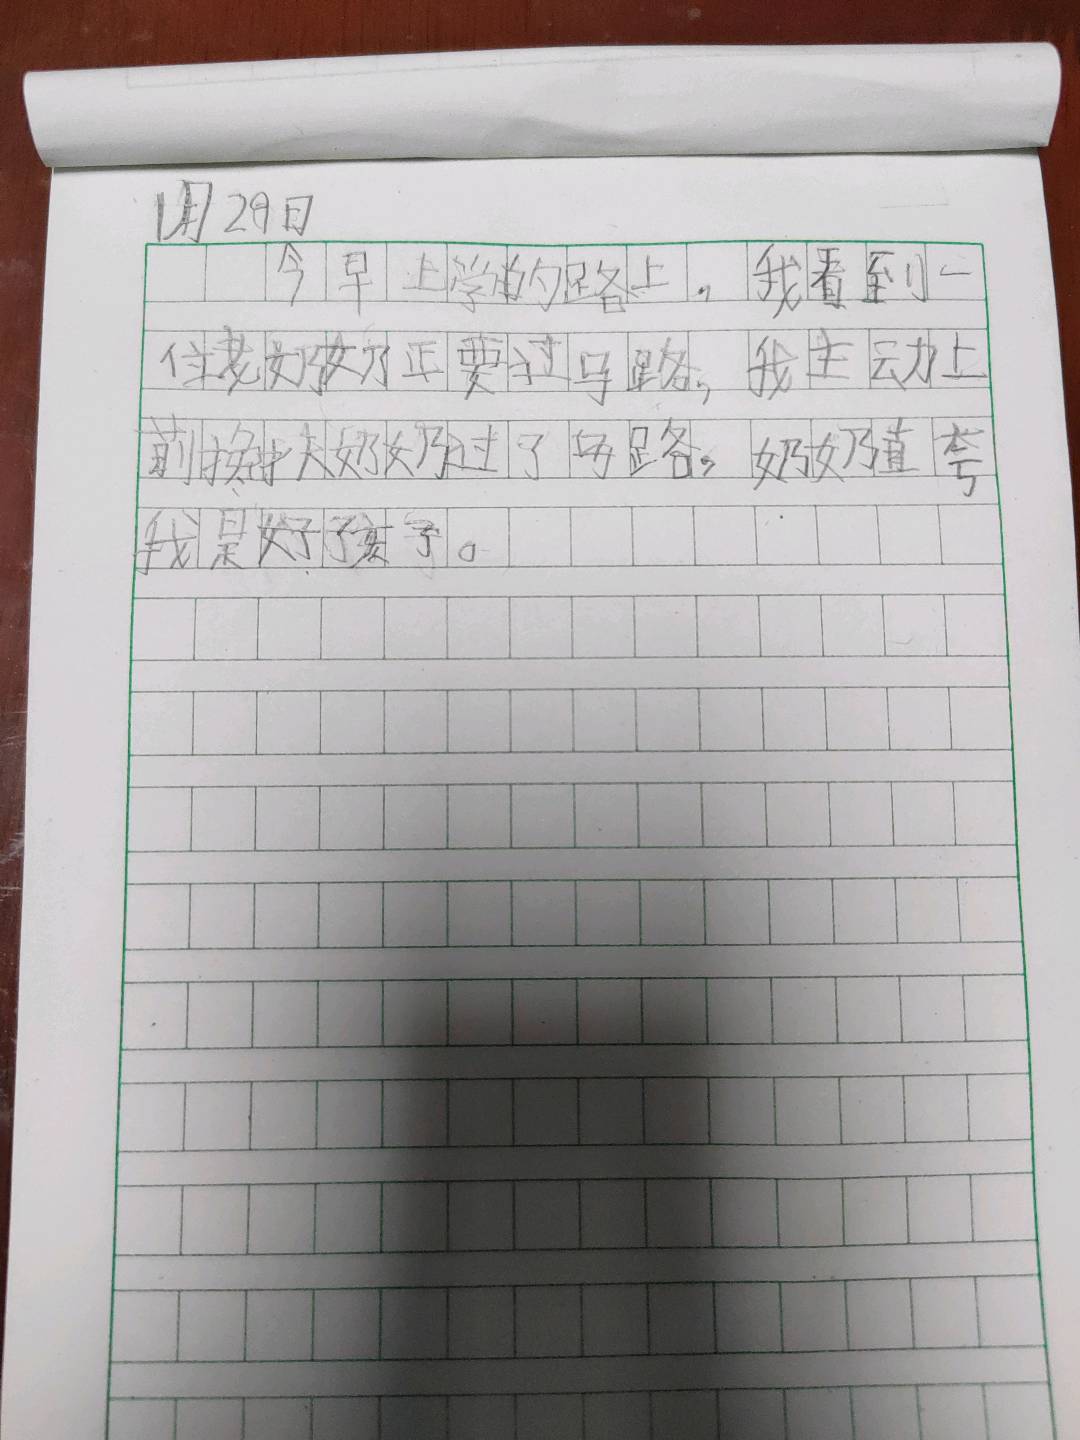 1月29日
今早上学的路上，我看到一
位老奶奶正要过马路，我主动上
前搀扶奶奶过了马路。奶奶直夸
我是好孩子。